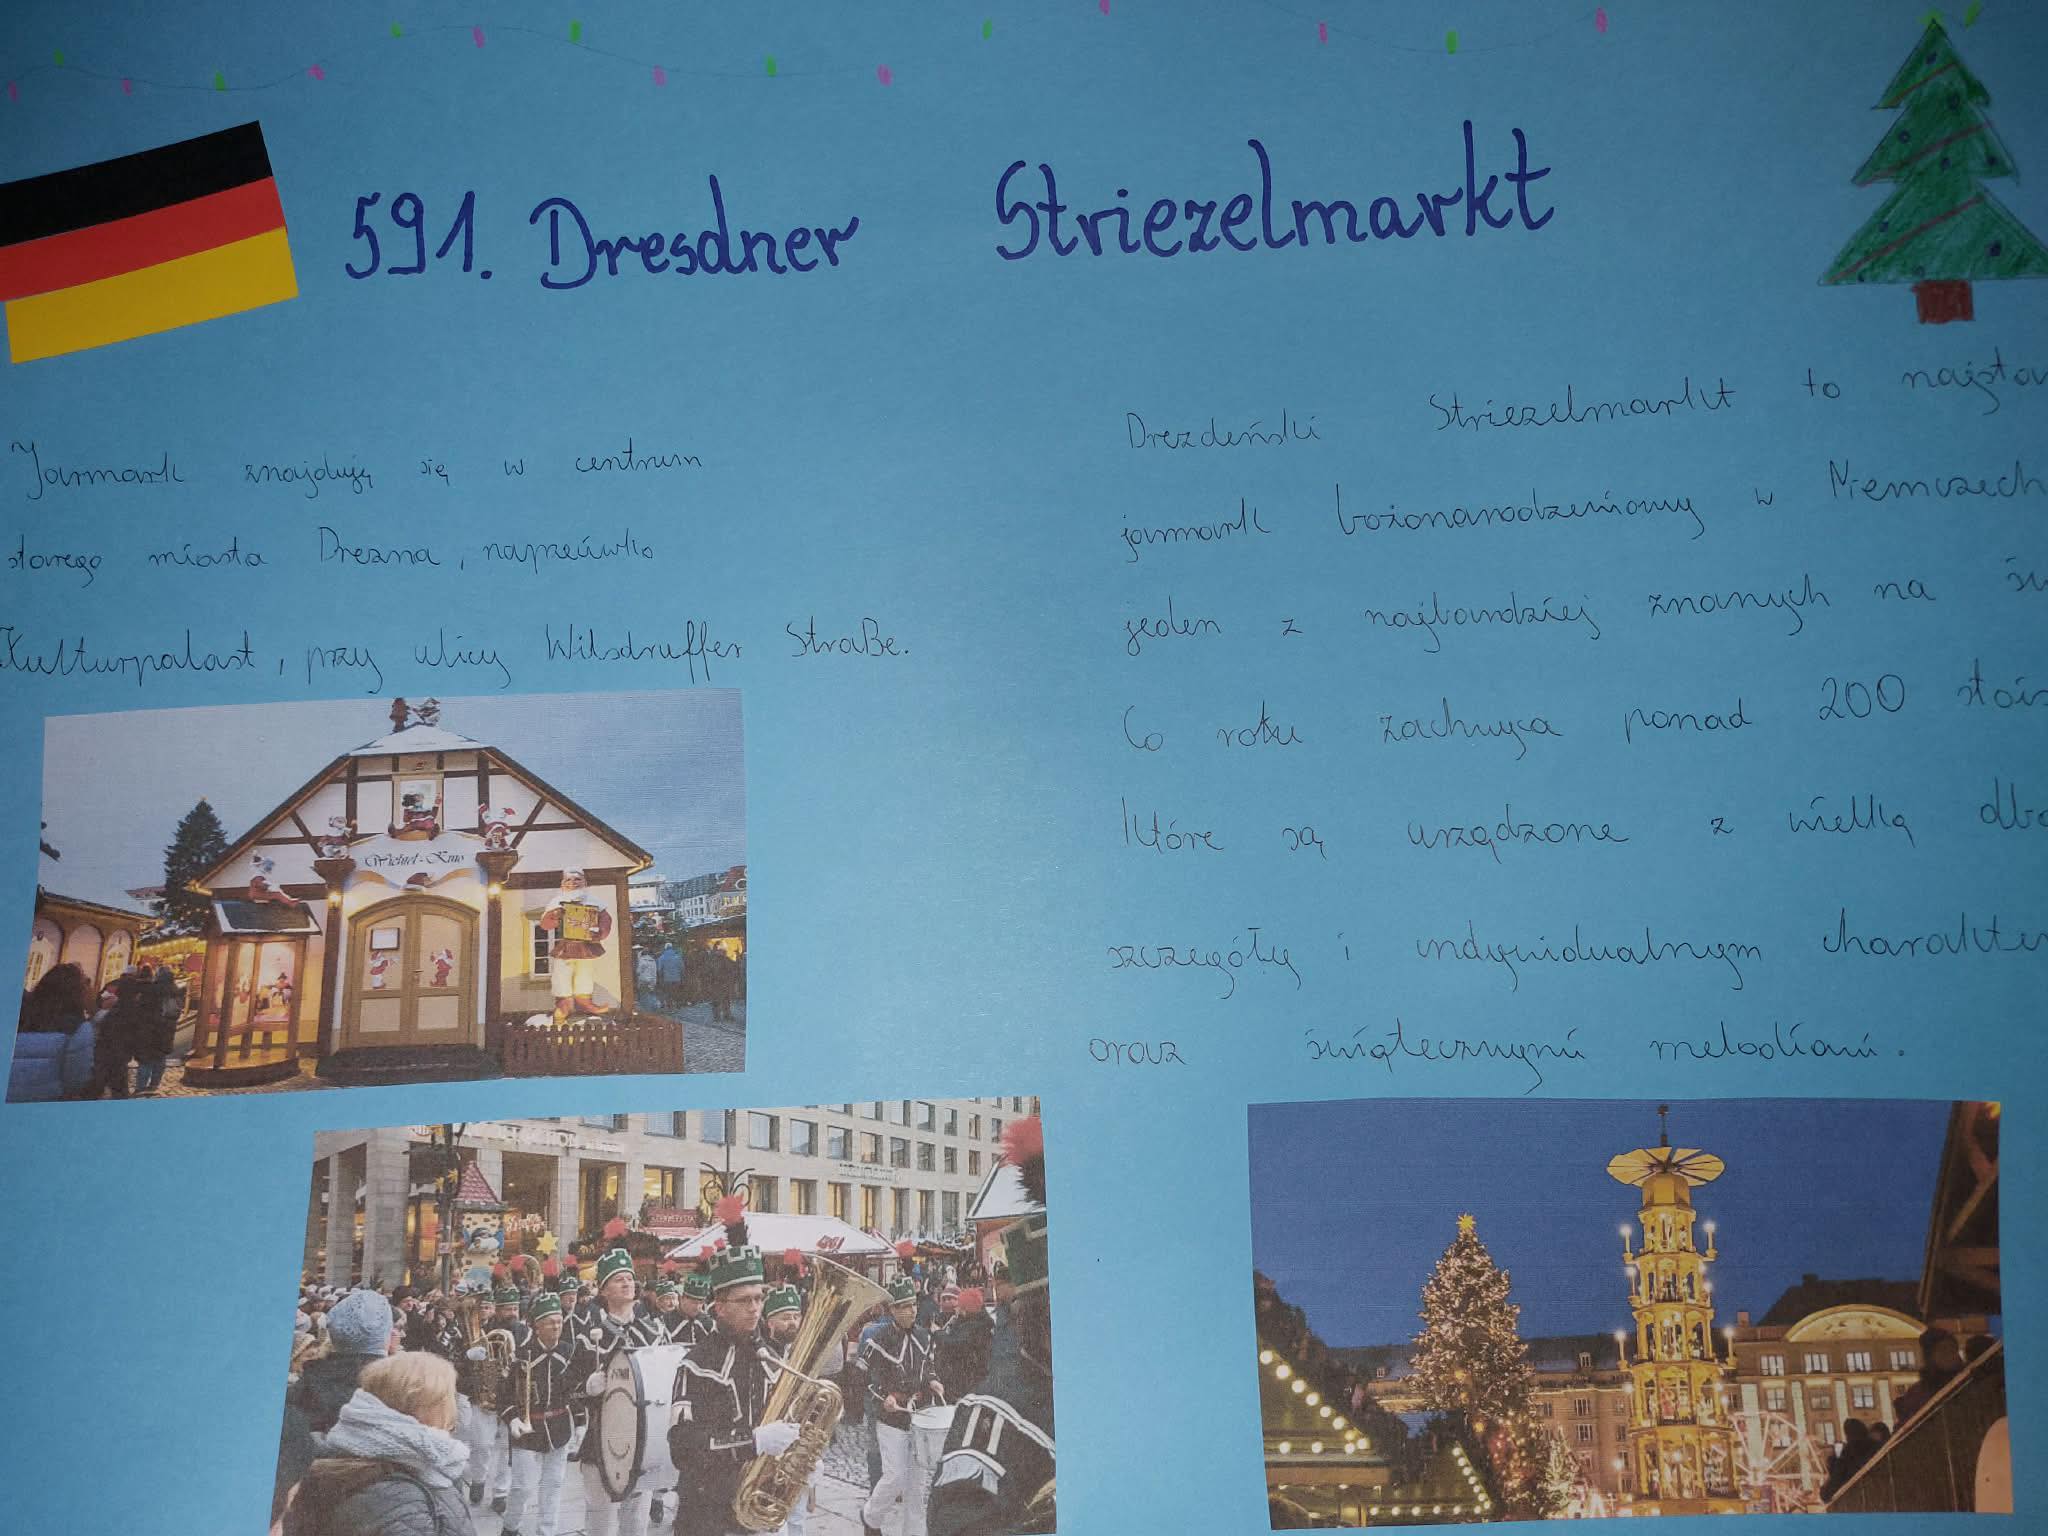 591. Dresdner Striezelmarkt
Jarmark znajdują się w centrum
starego miasta Drezna, naprzeciwko
Kulturpalast, przy ulicy Wilsdruffer Straße.
Drezdeński Striezelmarkt to najstar
jarmark bożonarodzeniowy w Niemczech
jeden z najbardziej znanych na św
Co roku zachwyca ponad 200 stois
które są urządzone z wielką dba
szczegóły i indywidualnym charakter
oraz świątecznymi melodiami.
Wichtel-Kino